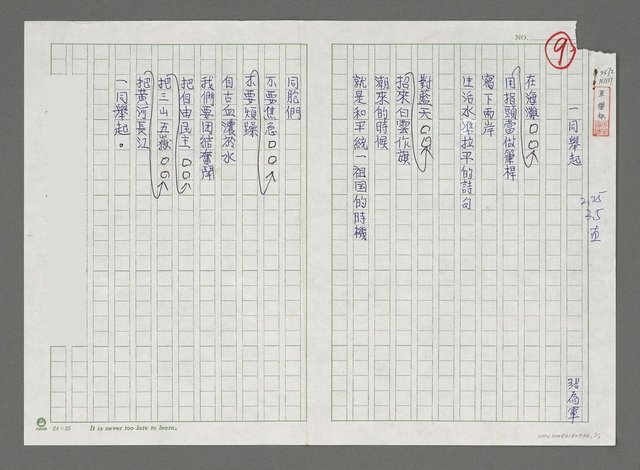 NO.
9
一同舉起
2,25
35
直
在海灘□□
用指頭當做筆桿
寫下兩岸
生活水準拉平的詩句
對藍天□□
招來白雲作旗
潮來的時候
就是和平統一祖国的時機
同胞們
不要焦急□□
不要煩躁
自古血濃於水
我們要团结奮鬥
把自由民主□□
把三山五嶽□□
把黄河長江
一同舉起。
24×25
It is never too late to learn.